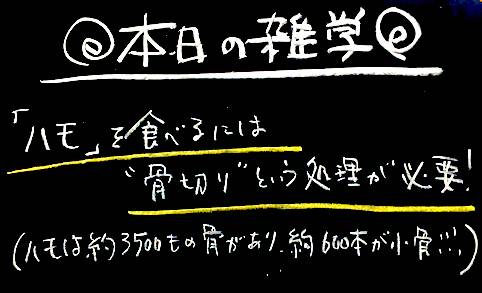 ◎本日の雑学◎
「ハモ」を食べるには
"骨切り"という処理が必要!
(ハモは約3500もの骨があり、約600本が小骨!!!)